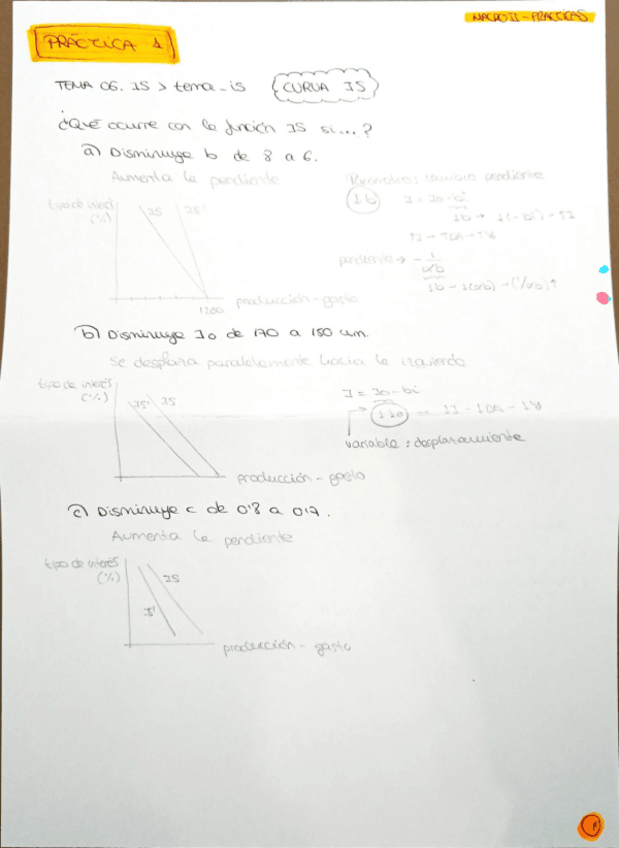 MACRO II - PRÁCTICAS
PRÁCTICA 1
TEMA 06. IS > tema-is CURVA IS
¿Qué ocurre con la función IS si...?
a) Disminuye b de 8 a 6.
Aumenta la pendiente
Parámetro: cambio pendiente
tipo de interés
(%)
IS IS'
↓b
I = I0 - bi
pendiente → - 1/αb
1200
producción - gasto
b) Disminuye I0 de 170 a 150 u.m.
Se desplaza paralelamente hacia la izquierda
tipo de interés
(%)
IS' IS
I = I0 - bi
↓I0
variable: desplazamiento
producción - gasto
c) Disminuye c de 0'8 a 0'7.
Aumenta la pendiente
tipo de interés
(%)
IS
producción - gasto
1